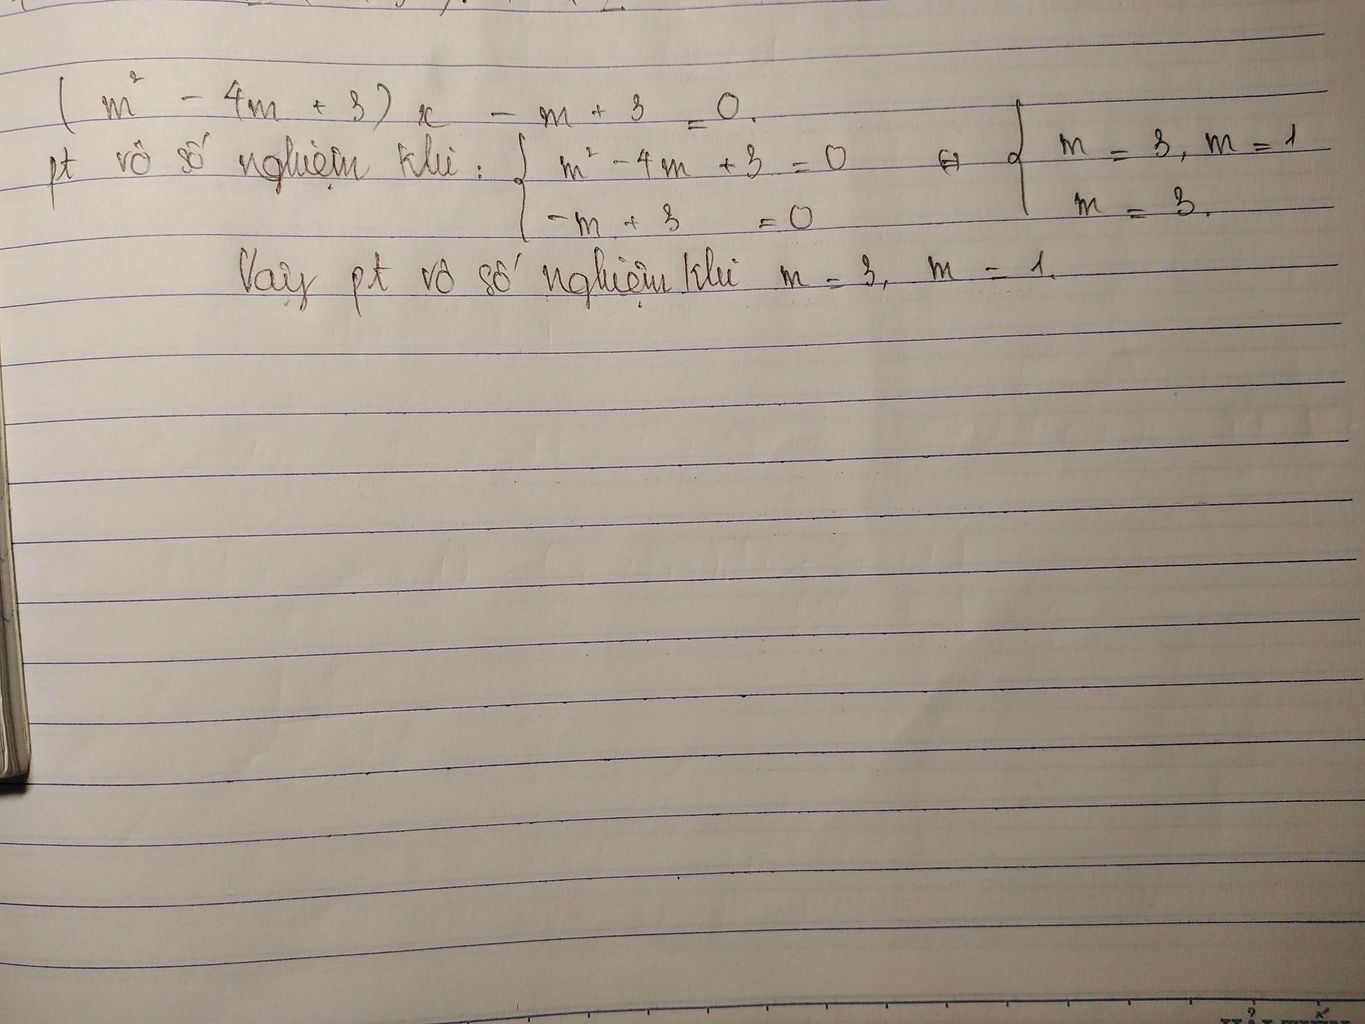 (m² - 4m + 3) x - m + 3 = 0.
pt vô số nghiệm khi: { m² - 4m + 3 = 0 ⇔ { m = 3, m = 1
-m + 3 = 0 m = 3.
Vậy pt vô số nghiệm khi m = 3, m = 1.